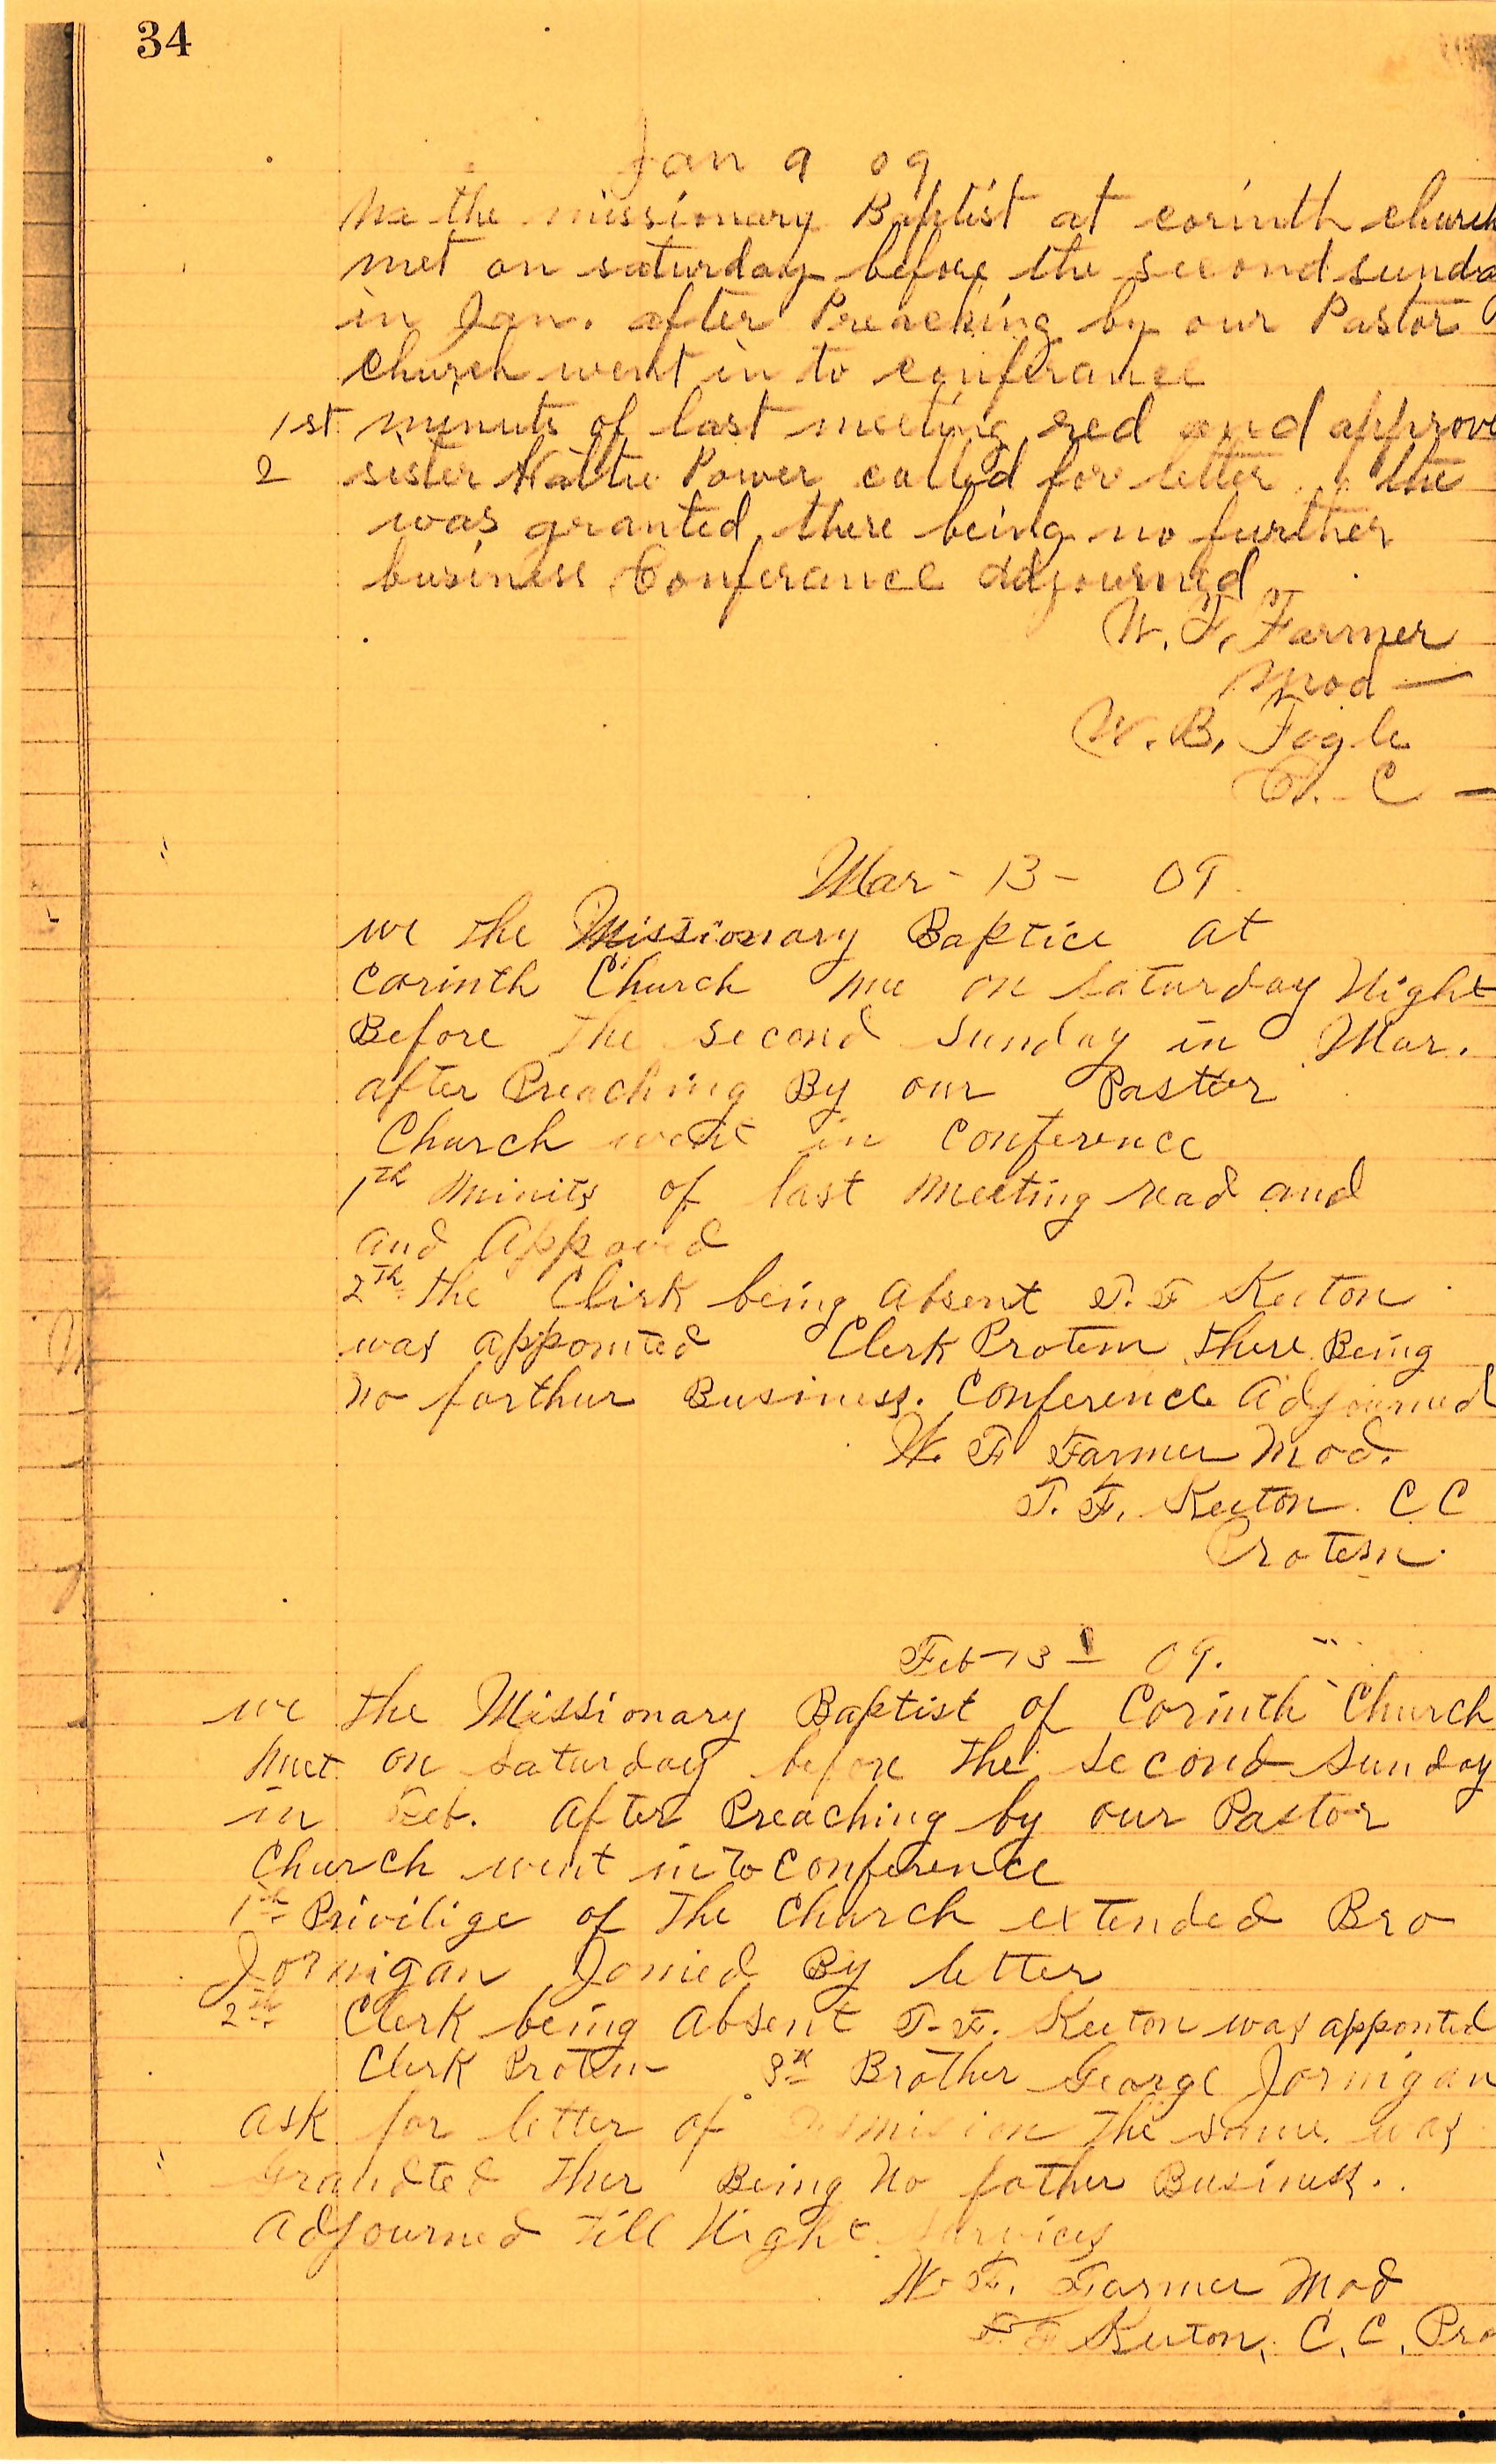 34
Jan 9 09
We the missionary Baptist at corinth church
met on saturday before the second sunday
in Jan. after Preaching by our Pastor
church went in to conferance
1st minuts of last meeting red and approve
2 sister Hattie Power called for letter. the
was granted, there being no further
business Conferance adjourned
W. F. Farmer
Mod —
W. B. Fogle
C. C —
Mar - 13 - 09.
we the Missionary Baptice at
Corinth Church me on Saturday Night
Before the second Sunday in Mar.
after Preaching By our Pastor
Church went in conference
1th minits of last meeting read and
and Appoved
2th the Clirk being absent T. F Keeton
was apponted Clerk Protem there Being
no forthur Business. Conference adjourned
W. F Farmer Mod.
T. F. Keeton. C C
Protem.
Feb 13 09.
we the Missionary Baptist of Corinth Church
met on Saturday before the second Sunday
in Feb. After Preaching by our Pastor
Church went into conference
1st Privilige of the Church extended Bro
Jornigan Jonied By letter
2th Clerk being absent T. F. Keeton was apponted
Clerk Protem 3rd Brother George Jornigan
ask for letter of the same was
Grandted ther Being no father Business.
adjourned till Night Services
W. F. Farmer Mod
T. F Keeton, C. C. Pro